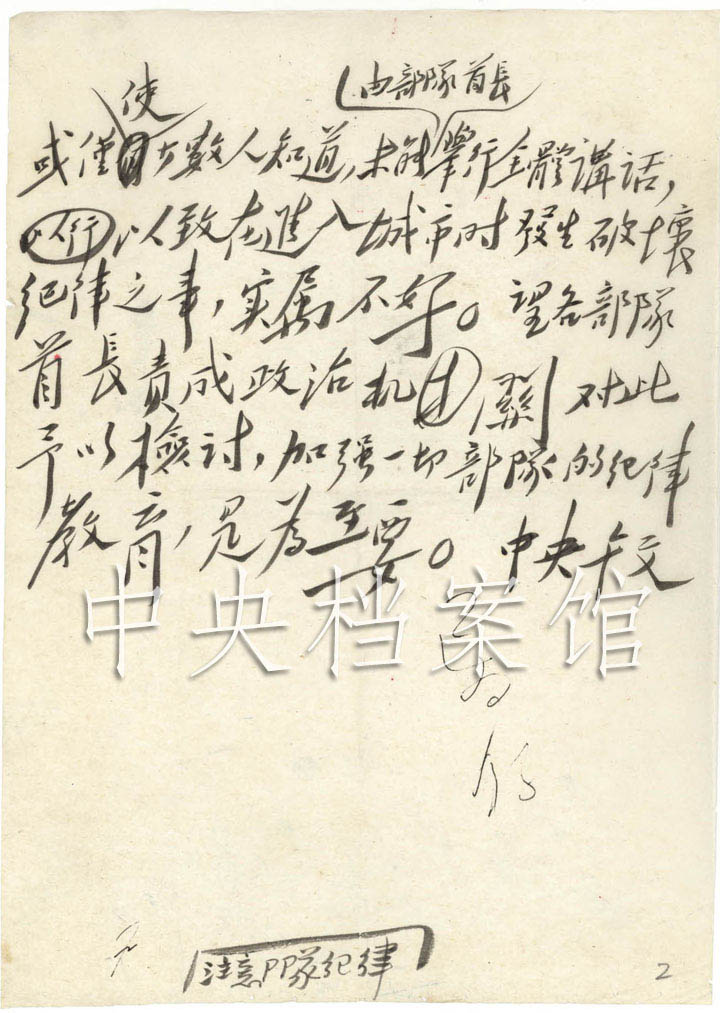 使
由部隊首長
或僅少數人知道,未能舉行全體講話,
以行以致在進入城市时發生破壞
纪律之事,实属不好。望各部隊
首長責成政治机関对此
予以檢討,加强一切部隊的纪律
教育,是為至要。中央
中央档案馆
注意部隊纪律
2